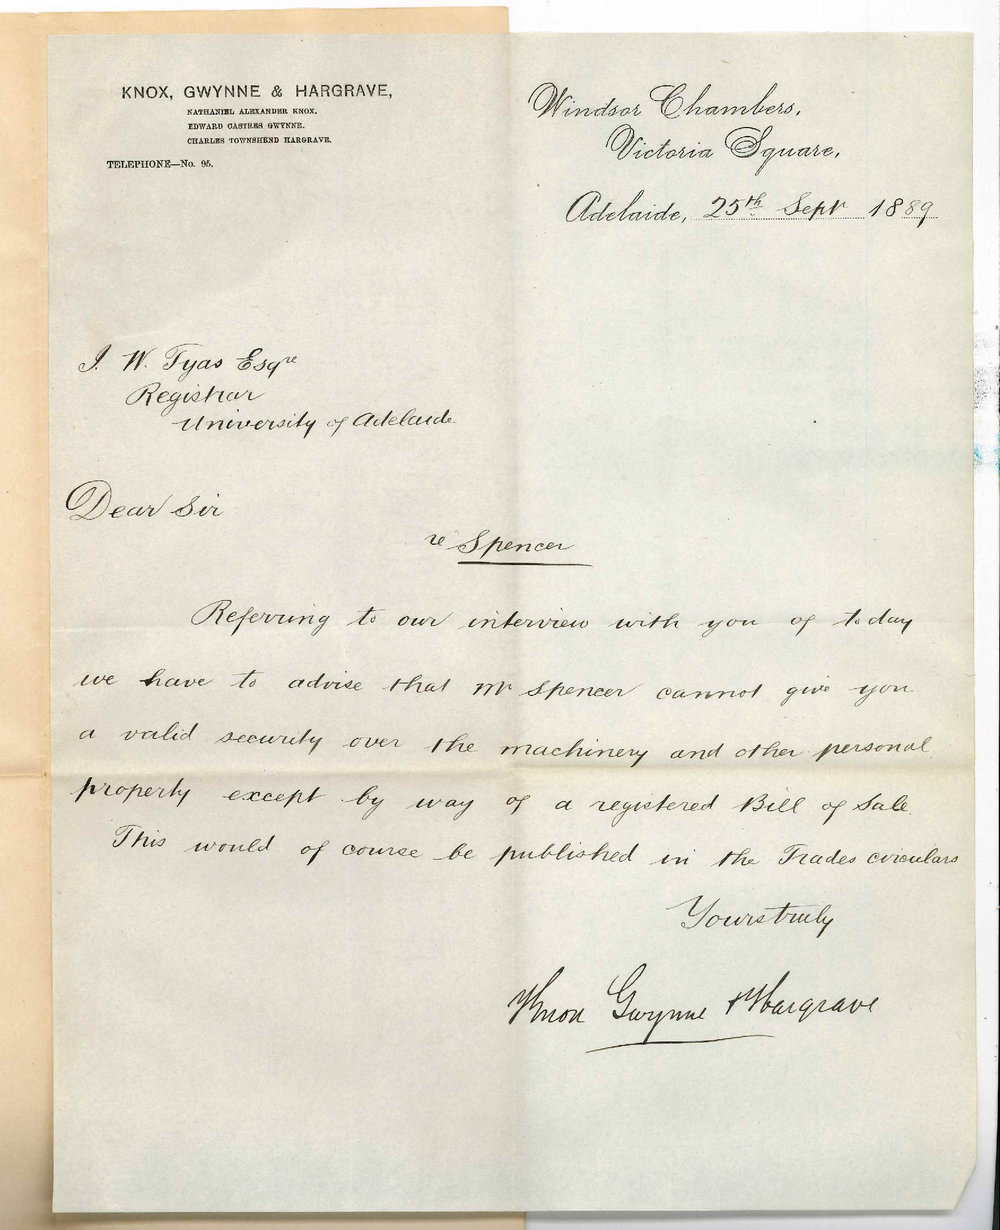 KNOX, GWYNNE & HARGRAVE,
NATHANIEL ALEXANDER KNOX.
EDWARD CASTRES GWYNNE.
CHARLES TOWNSHEND HARGRAVE.
TELEPHONE—No. 95.
Windsor Chambers,
Victoria Square,
Adelaide, 25th Sept 1889
J. W. Tyas Esqre
Registrar
University of Adelaide
Dear Sir
re Spencer
Referring to our interview with you of today
we have to advise that Mr Spencer cannot give you
a valid security over the machinery and other personal
property except by way of a registered Bill of Sale.
This would of course be published in the Trades circulars
Yours truly
Knox Gwynne & Hargrave